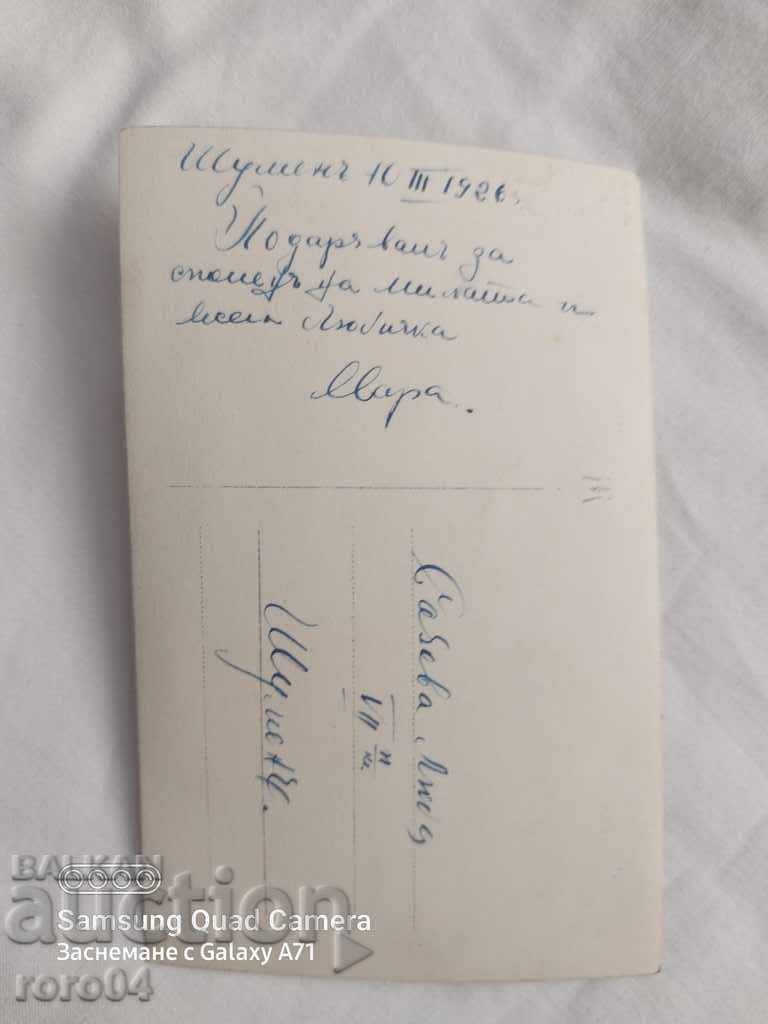 Шуменъ 10 III 1926
Подарявамъ за
споменъ на милата и
Любичка
Мара.
Савова Люба
VII
Шуменъ.
BALKAN
auction
Samsung Quad Camera
Заснемане с Galaxy A71
roro04